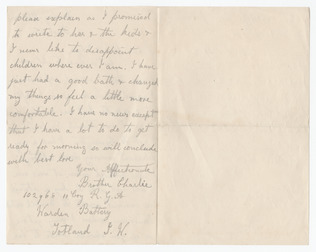 please explain as I promised
to write to her & the kids &
I never like to disappoint
children where ever I am. I have
just had a good bath & changed
my things so feel a little more
comfortable. I have no news except
that I have a lot to do to get
ready for morning so will conclude
with best love
Your Affectionate
Brother Charlie
Coy R. G. A
Warden Battery
Totland I. W.